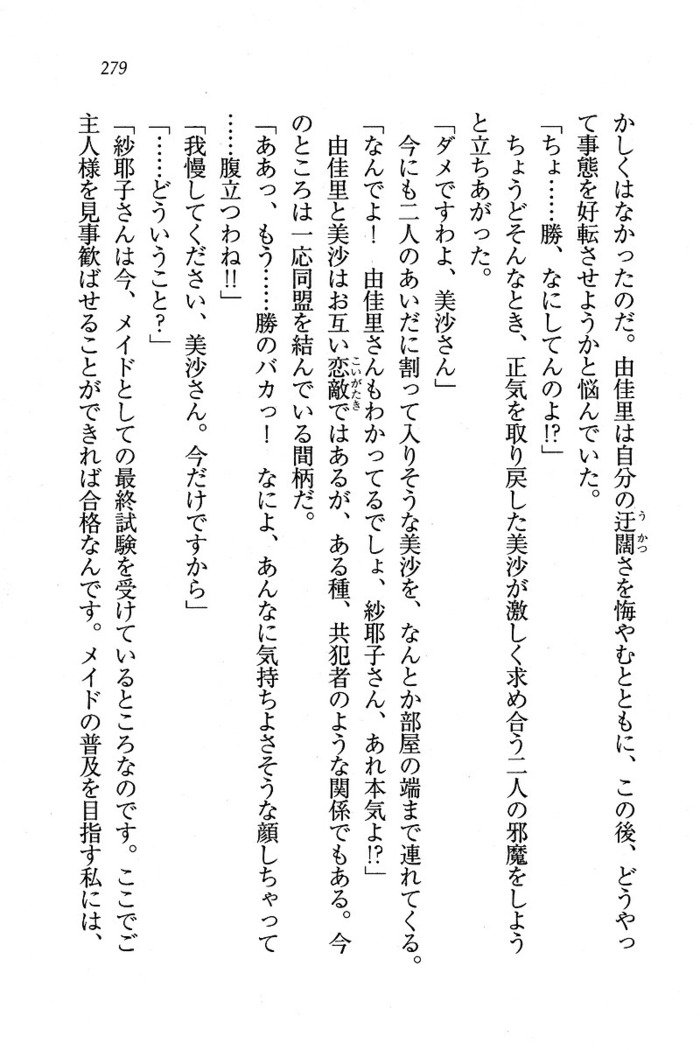 279
かしくはなかったのだ。由佳里は自分の迂闊さを悔やむとともに、この後、どうやっ
て事態を好転させようかと悩んでいた。
「ちょ……勝、なにしてんのよ!?」
ちょうどそんなとき、正気を取り戻した美沙が激しく求め合う二人の邪魔をしよう
と立ちあがった。
「ダメですわよ、美沙さん」
今にも二人のあいだに割って入りそうな美沙を、なんとか部屋の端まで連れてくる。
「なんでよ！　由佳里さんもわかってるでしょ、紗耶子さん、あれ本気よ!?」
由佳里と美沙はお互い恋敵ではあるが、ある種、共犯者のような関係でもある。今
のところは一応同盟を結んでいる間柄だ。
「ああっ、もう……勝のバカっ！　なによ、あんなに気持ちよさそうな顔しちゃって
……腹立つわね!!」
「我慢してください、美沙さん。今だけですから」
「……どういうこと？」
「紗耶子さんは今、メイドとしての最終試験を受けているところなのです。ここでご
主人様を見事歓ばせることができれば合格なんです。メイドの普及を目指す私には、